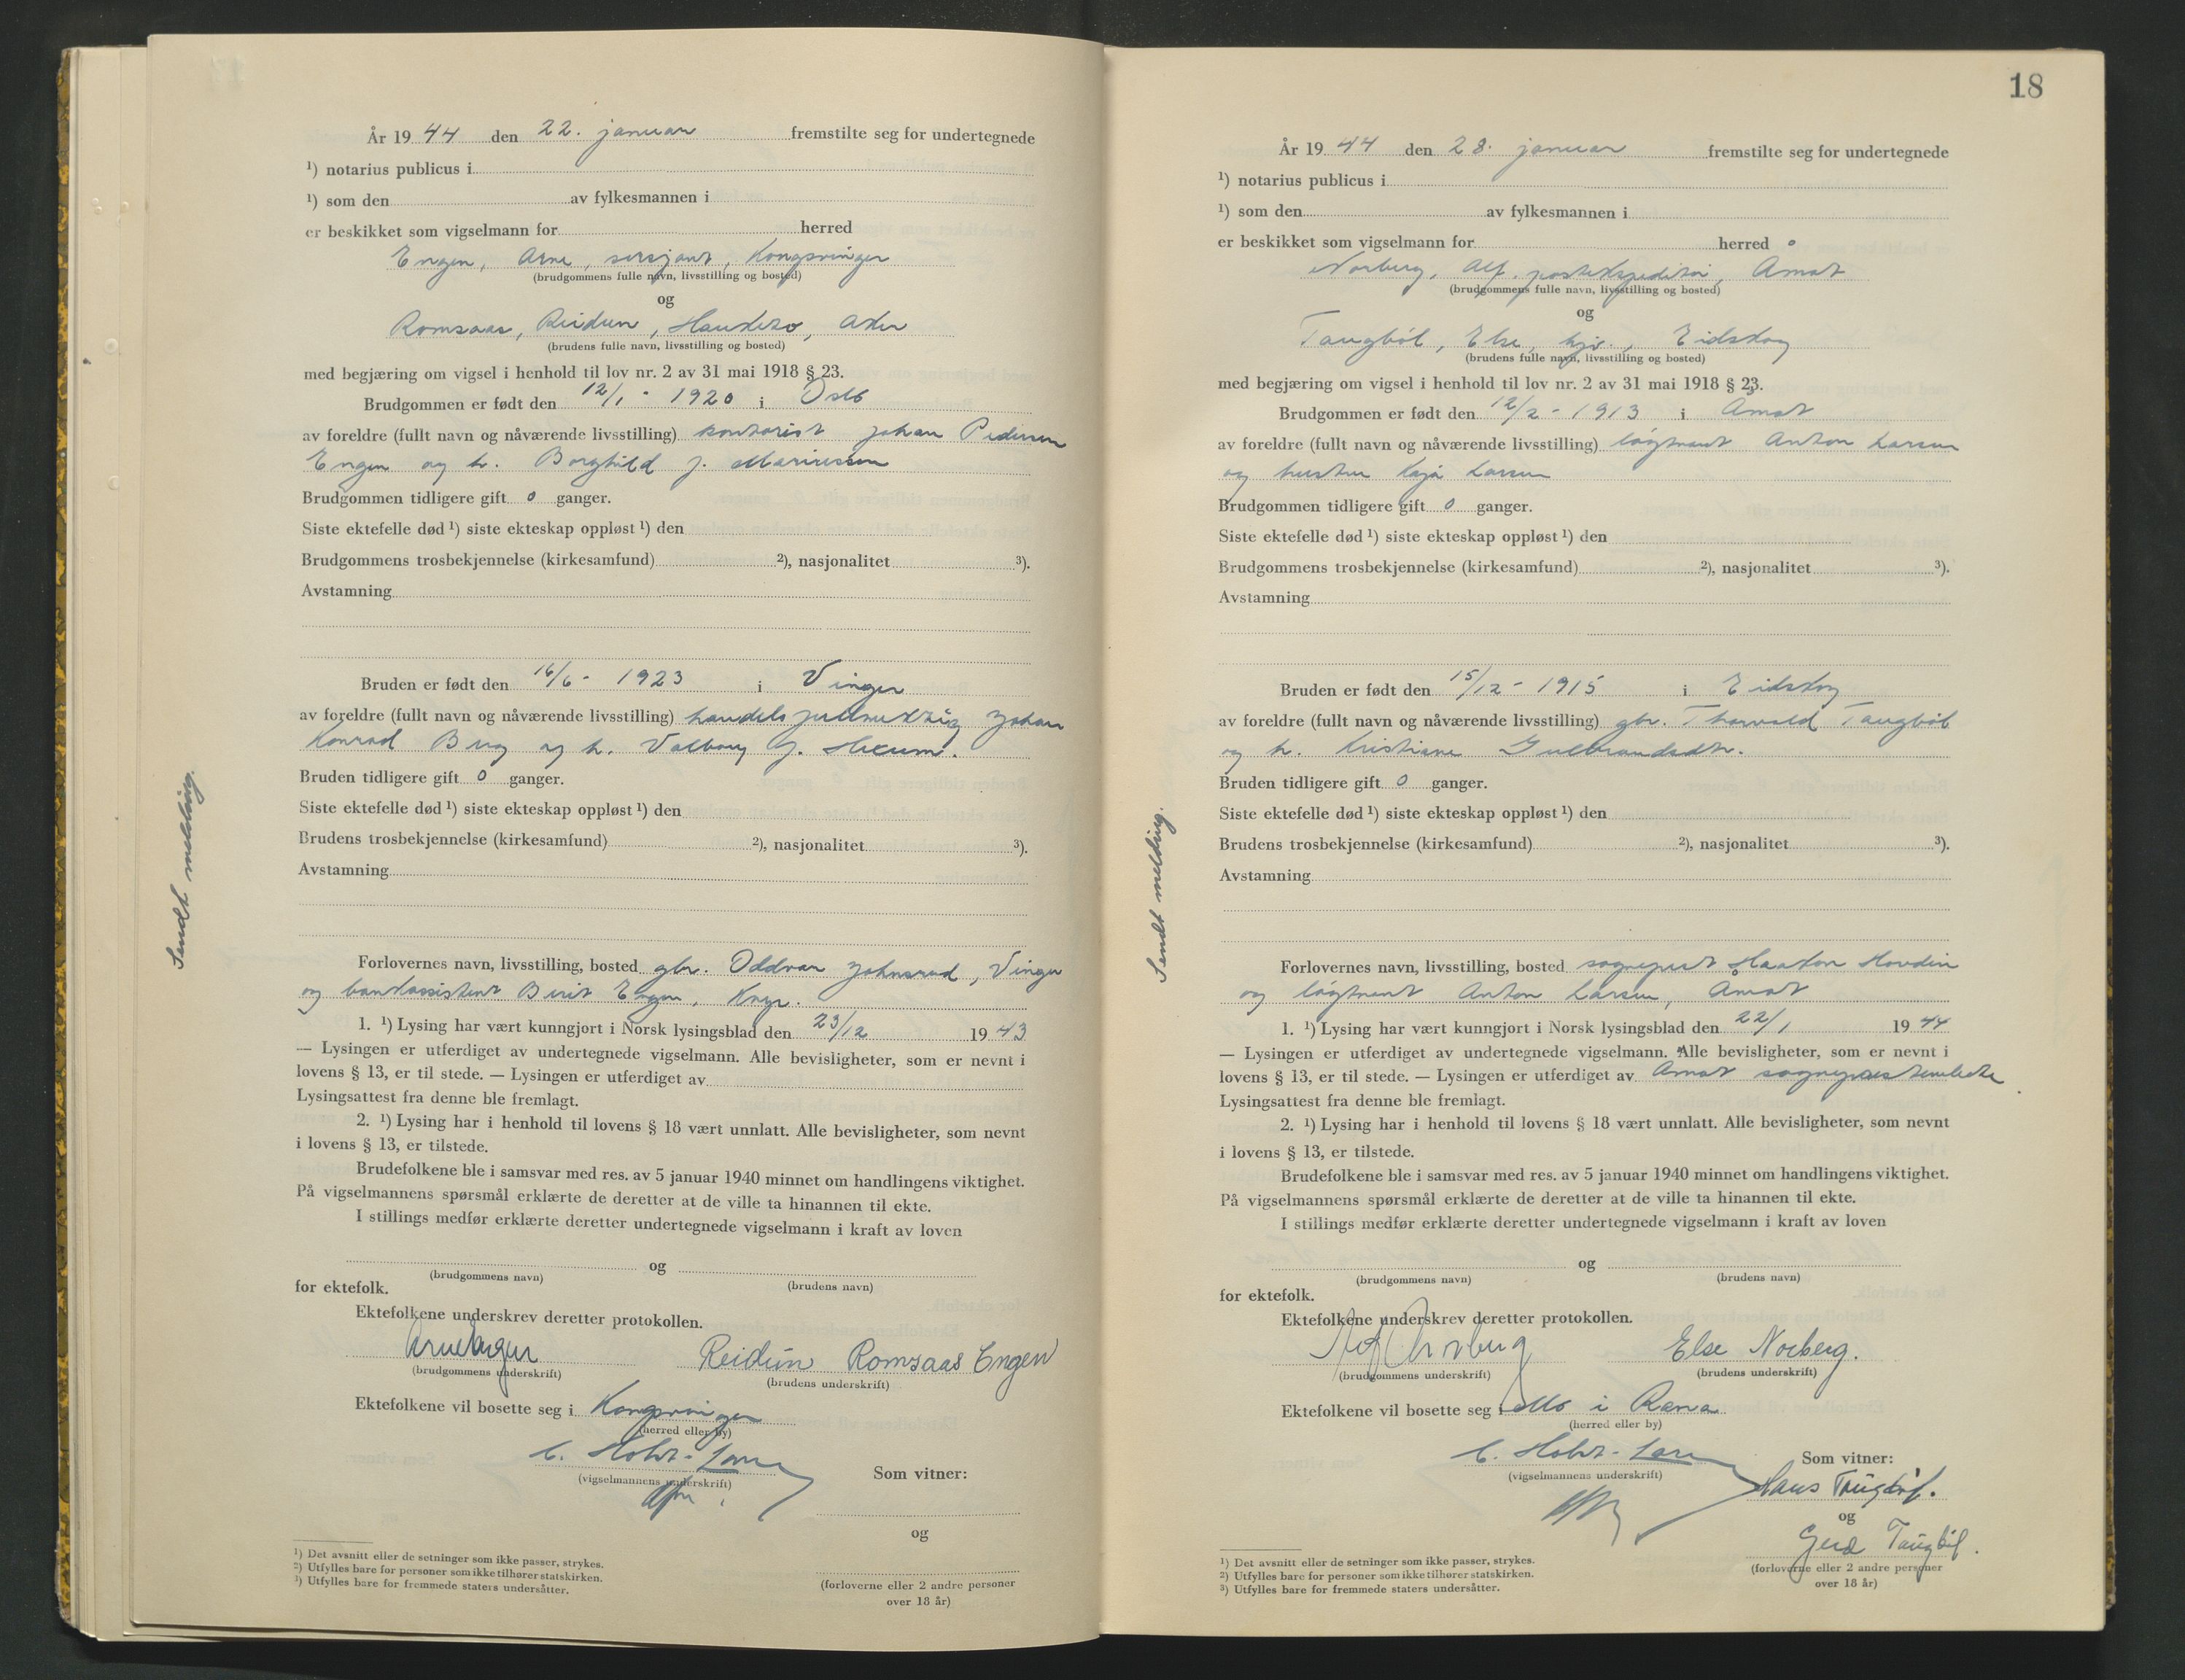 År 19 44 den 22. januar fremstilte seg for undertegnede
¹) notarius publicus i
¹) som den av fylkesmannen i
er beskikket som vigselmann for herred
Engen, Arne, sersjant, Kongsvinger
(brudgommens fulle navn, livsstilling og bosted)
og
Romsaas, Reidun,
(brudens fulle navn, livsstilling og bosted)
med begjæring om vigsel i henhold til lov nr. 2 av 31 mai 1918 § 23.
Brudgommen er født den 12/1 - 1920 i Oslo
av foreldre (fullt navn og nåværende livsstilling) kontorist Johan Pedersen
Engen og h. Borghild f.
Brudgommen tidligere gift 0 ganger.
Siste ektefelle død ¹) siste ekteskap oppløst ¹) den
Brudgommens trosbekjennelse (kirkesamfund) ²), nasjonalitet ³).
Avstamning
Bruden er født den 16/6 - 1923 i Vinger
av foreldre (fullt navn og nåværende livsstilling) handelsfullmektig Johan
Konrad Berg og h. Valborg f.
Bruden tidligere gift 0 ganger.
Siste ektefelle død ¹) siste ekteskap oppløst ¹) den
Brudens trosbekjennelse (kirkesamfund) ²), nasjonalitet ³).
Avstamning
Sendt melding.
Forlovernes navn, livsstilling, bosted gbr. Oddvar Johnsrud, Vinger
og bankassistent Berit Engen, Kngv.
1. ¹) Lysing har vært kunngjort i Norsk lysingsblad den 23/12 19 43
— Lysingen er utferdiget av undertegnede vigselmann. Alle bevisligheter, som er nevnt i
lovens § 13, er til stede. — Lysingen er utferdiget av
Lysingsattest fra denne ble fremlagt.
2. ¹) Lysing har i henhold til lovens § 18 vært unnlatt. Alle bevisligheter, som nevnt
i lovens § 13, er tilstede.
Brudefolkene ble i samsvar med res. av 5 januar 1940 minnet om handlingens viktighet.
På vigselmannens spørsmål erklærte de deretter at de ville ta hinannen til ekte.
I stillings medfør erklærte deretter undertegnede vigselmann i kraft av loven
og
(brudgommens navn) (brudens navn)
for ektefolk.
Ektefolkene underskrev deretter protokollen.
Arne Engen Reidun Romsaas Engen
(brudgommens underskrift) (brudens underskrift)
Ektefolkene vil bosette seg i Kongsvinger
(herred eller by)
C. Holst-
(vigselmannens underskrift)
Som vitner:
og
(forloverne eller 2 andre personer
over 18 år)
¹) Det avsnitt eller de setninger som ikke passer, strykes.
²) Utfylles bare for personer som ikke tilhører statskirken.
³) Utfylles bare for fremmede staters undersåtter.
18
År 19 44 den 28. januar fremstilte seg for undertegnede
¹) notarius publicus i
¹) som den av fylkesmannen i
er beskikket som vigselmann for herred
Norberg, Alf, postekspeditør, Åmot
(brudgommens fulle navn, livsstilling og bosted)
og
Taugbøl, Else, hjv., Eidskog
(brudens fulle navn, livsstilling og bosted)
med begjæring om vigsel i henhold til lov nr. 2 av 31 mai 1918 § 23.
Brudgommen er født den 12/2 - 1913 i Åmot
av foreldre (fullt navn og nåværende livsstilling) løytnant Anton Larsen
og hustru Kaja Larsen
Brudgommen tidligere gift 0 ganger.
Siste ektefelle død ¹) siste ekteskap oppløst ¹) den
Brudgommens trosbekjennelse (kirkesamfund) ²), nasjonalitet ³).
Avstamning
Bruden er født den 15/12 - 1915 i Eidskog
av foreldre (fullt navn og nåværende livsstilling) gbr. Thorvald Taugbøl
og h. Kristiane Gulbrandsdtr.
Bruden tidligere gift 0 ganger.
Siste ektefelle død ¹) siste ekteskap oppløst ¹) den
Brudens trosbekjennelse (kirkesamfund) ²), nasjonalitet ³).
Avstamning
Sendt melding.
Forlovernes navn, livsstilling, bosted sogneprest Haakon Hovden
og løytnant Anton Larsen, Åmot
1. ¹) Lysing har vært kunngjort i Norsk lysingsblad den 22/1 19 44
— Lysingen er utferdiget av undertegnede vigselmann. Alle bevisligheter, som er nevnt i
lovens § 13, er til stede. — Lysingen er utferdiget av Åmot sogneprestembete
Lysingsattest fra denne ble fremlagt.
2. ¹) Lysing har i henhold til lovens § 18 vært unnlatt. Alle bevisligheter, som nevnt
i lovens § 13, er tilstede.
Brudefolkene ble i samsvar med res. av 5 januar 1940 minnet om handlingens viktighet.
På vigselmannens spørsmål erklærte de deretter at de ville ta hinannen til ekte.
I stillings medfør erklærte deretter undertegnede vigselmann i kraft av loven
og
(brudgommens navn) (brudens navn)
for ektefolk.
Ektefolkene underskrev deretter protokollen.
Alf Norberg Else Norberg.
(brudgommens underskrift) (brudens underskrift)
Ektefolkene vil bosette seg i Mo i Rana
(herred eller by)
C. Holst-
(vigselmannens underskrift)
Som vitner:
Hans Taugbøl.
og
Gerd Taugbøl.
(forloverne eller 2 andre personer
over 18 år)
¹) Det avsnitt eller de setninger som ikke passer, strykes.
²) Utfylles bare for personer som ikke tilhører statskirken.
³) Utfylles bare for fremmede staters undersåtter.